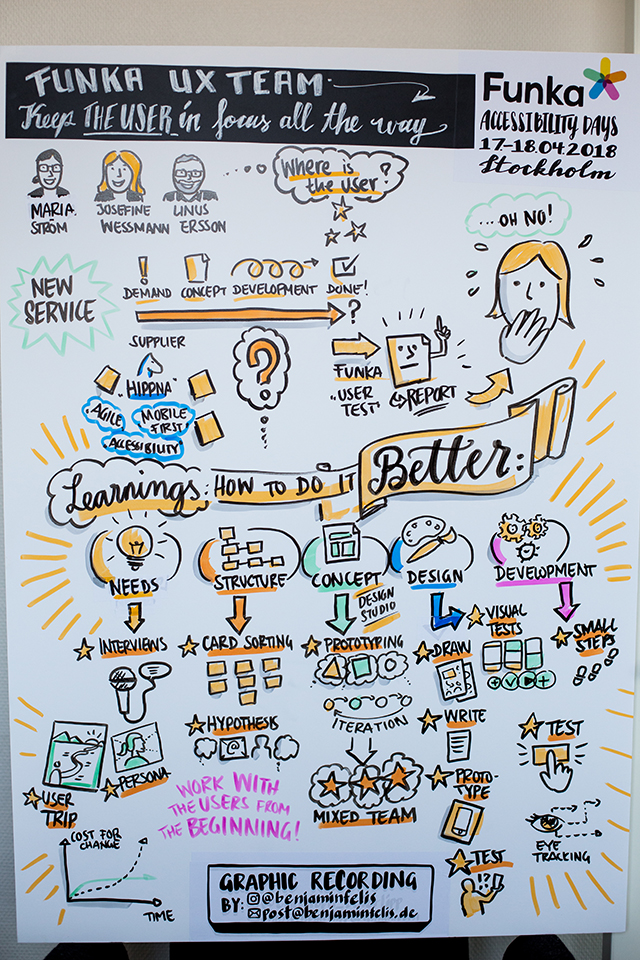 FUNKA UX TEAM
Keep THE USER in focus all the way
Funka
ACCESSIBILITY DAYS
17-18 04 2018
Stockholm
MARIA STRÖM
JOSEFINE WESSMANN
LINUS ERSSON
Where is
the user?
... OH NO!
NEW
SERVICE
DEMAND
CONCEPT
DEVELOPMENT
DONE!
?
SUPPLIER
HIPPNA
AGILE
MOBILE
FIRST
ACCESSIBILITY
?
FUNKA
"USER
TEST"
REPORT
Learnings: HOW TO DO IT Better:
NEEDS
STRUCTURE
CONCEPT
DESIGN
DEVELOPMENT
DESIGN
STUDIO
INTERVIEWS
CARD SORTING
PROTOTYPING
DRAW
VISUAL
TESTS
SMALL
STEPS
ITERATION
HYPOTHESIS
WRITE
TEST
PERSONA
USER
TRIP
WORK WITH
THE USERS FROM
THE BEGINNING!
MIXED TEAM
PROTO-
TYPE
EYE
TRACKING
TEST
!?
COST FOR
CHANGE
TIME
GRAPHIC RECORDING
BY: @benjaminfelis
post@benjaminfelis.de